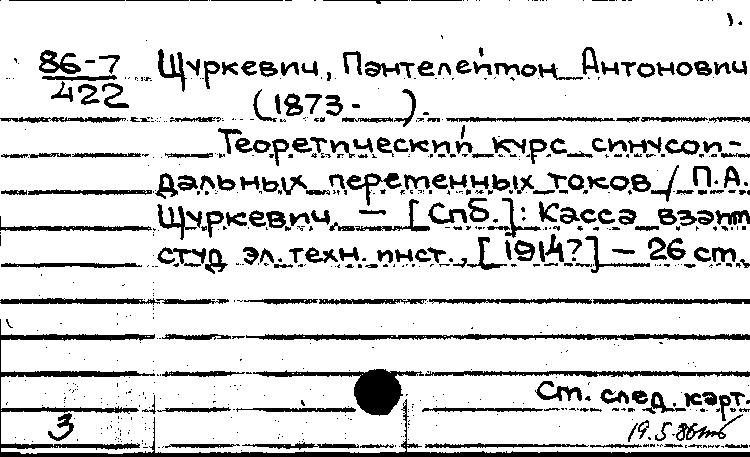 1.
86-7 Щуркевич, Пантелеймон Антонович
422 (1873- ).
Теоретический курс синусои-
дальных переменных токов / П.А.
Щуркевич. — [Спб.]: Касса взаим
студ эл. техн. инст., [1914?] — 26 см.
См. след. карт.
3
19.5.86